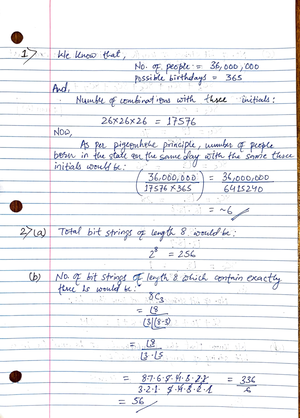 1) We know that,
No. of people = 36,000,000
possible birthdays = 365
And,
Number of combinations with three initials:
26×26×26 = 17576
Now,
As per pigeonhole principle, number of people
born in the state on the same day with the same three
initials would be:
(36,000,000 / 17576×365) = 36,000,000 / 6415240
= ~6
2) (a) Total bit strings of length 8 would be:
2^8 = 256
(b) No. of bit strings of length 8 which contain exactly
three 1s would be:
8C3
= |8 / |3 |(8-3)
= |8 / |3 · |5
= 8·7·6·5·4·3·2·1 / 3·2·1·5·4·3·2·1 = 336 / 6
= 56